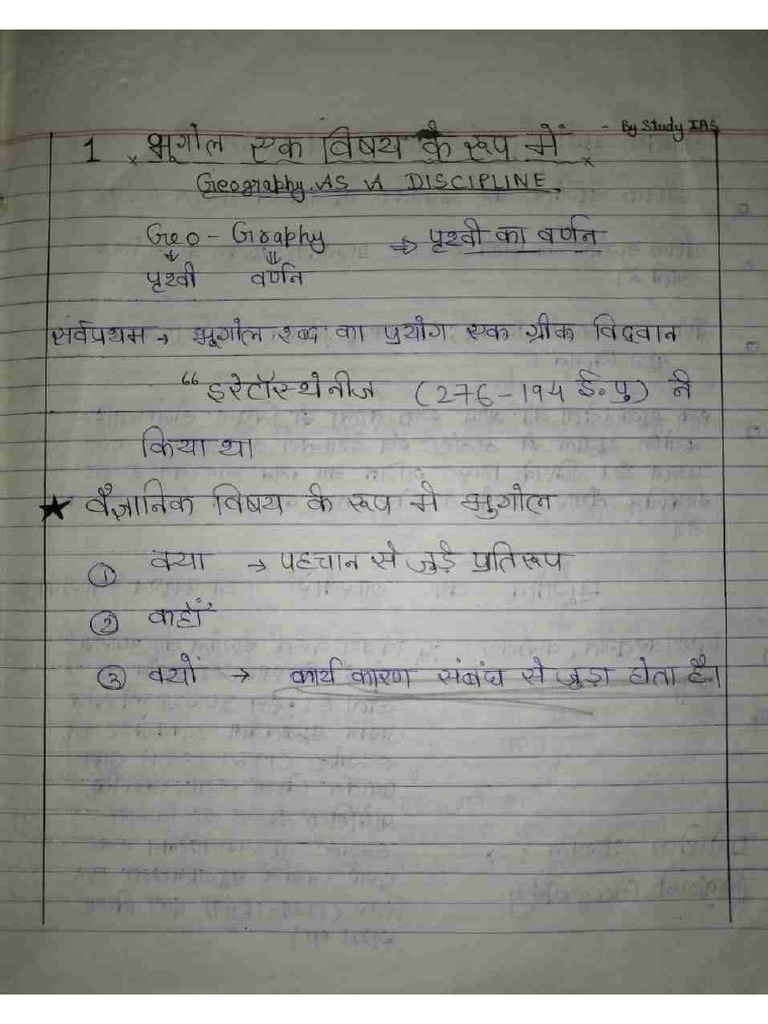 - By Study IAS
1 × भूगोल एक विषय के रूप में ×
Geography AS A DISCIPLINE
Geo - Graphy ⇒ पृथ्वी का वर्णन
पृथ्वी वर्णन
सर्वप्रथम → भूगोल शब्द का प्रयोग एक ग्रीक विद्वान
“ इरेटॉस्थेनीज (276-194 ई॰पु) ने
किया था
★ वैज्ञानिक विषय के रूप मे भुगोल
① क्या → पहचान से जुड़े प्रतिरूप
② कहाँ
③ क्यों → कार्य कारण संबंध से जुड़ा होता है।